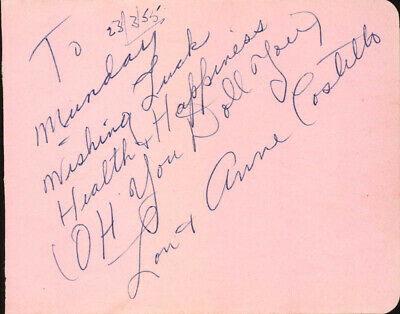 23/3/55
To
Munday
Wishing Luck
Health & Happiness
(OH You Doll You)
Lou & Anne Costello